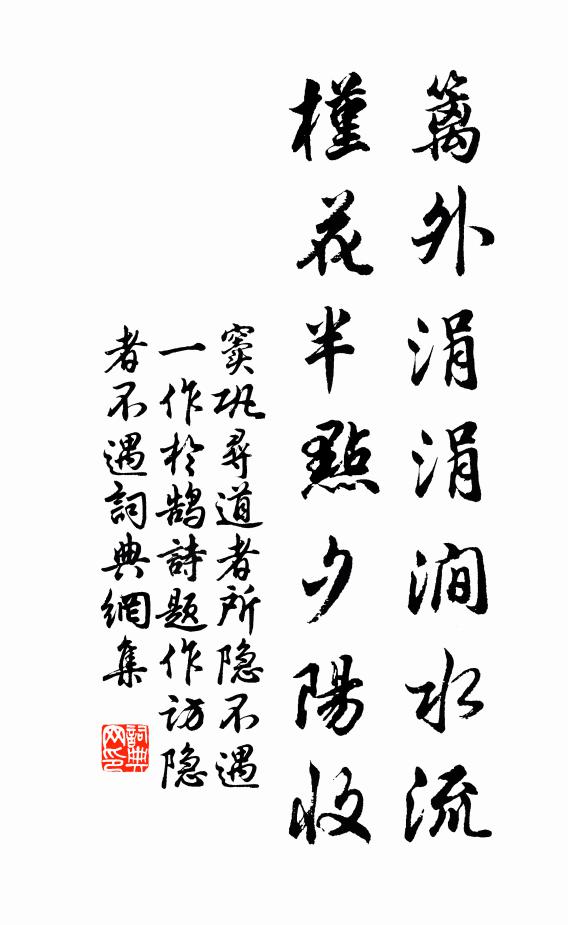 篱外涓涓澗水流
槿花半點夕陽收
竇巩尋道者所隐不遇
一作於鹄詩題作訪隐
者不遇詞典網集
詞典网印